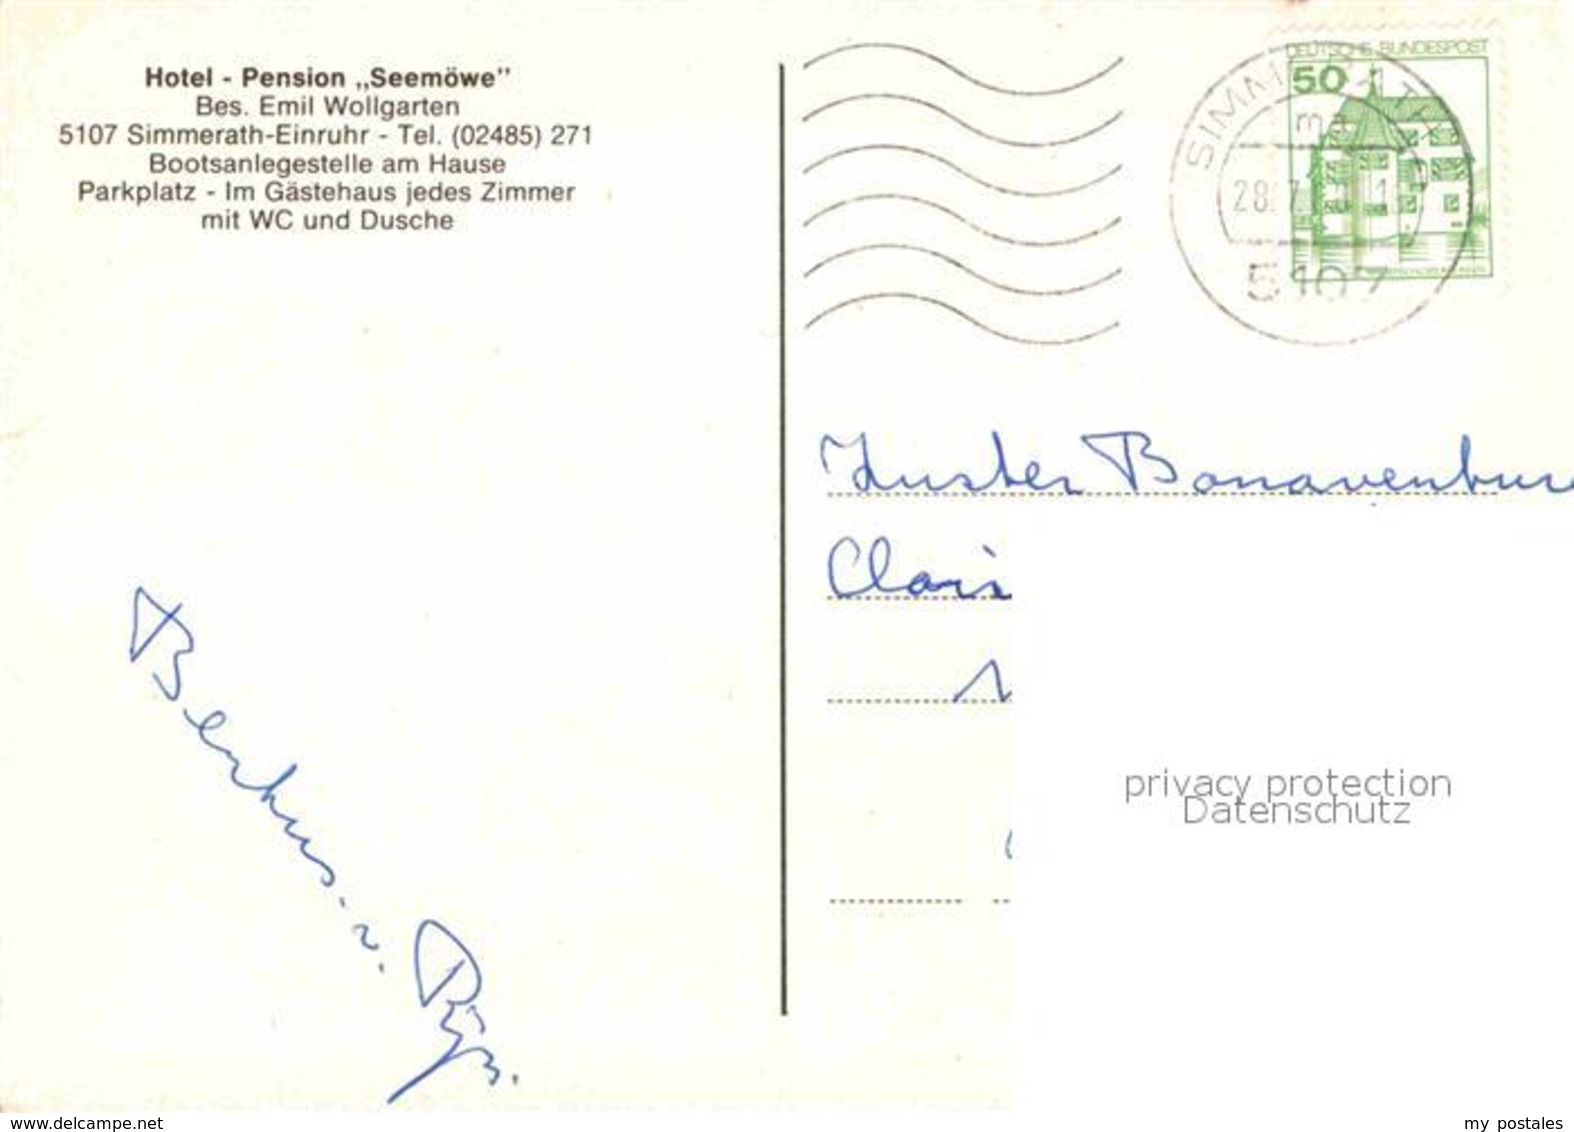 Hotel - Pension „Seemöwe"
Bes. Emil Wollgarten
5107 Simmerath-Einruhr - Tel. (02485) 271
Bootsanlegestelle am Hause
Parkplatz - Im Gästehaus jedes Zimmer
mit WC und Dusche
DEUTSCHE BUNDESPOST
50
SIMMERATH
ma
28. 7.
5107
Bonaventur
privacy protection
Datenschutz
www.delcampe.net
my postales